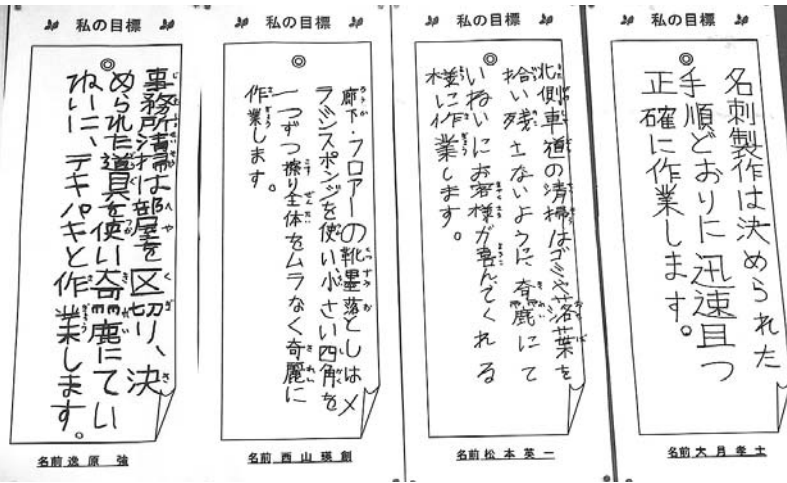 私の目標
◎
事務所清掃は部屋を区切り、決
められた道具を使い奇麗にてい
ねいに、テキパキと作業します。
名前 逸原 強
私の目標
◎
廊下・フロアーの靴墨落としはメ
ラミンスポンジを使い小さい四角を
一つずつ擦り全体をムラなく奇麗に
作業します。
名前 西山瑛創
私の目標
◎
北側車道の清掃はゴミや落葉を
拾い残さないように奇麗にて
いねいにお客様が喜んでくれる
様に作業します。
名前 松本英一
私の目標
◎
名刺製作は決められた
手順どおりに迅速且つ
正確に作業します。
名前 大月孝士